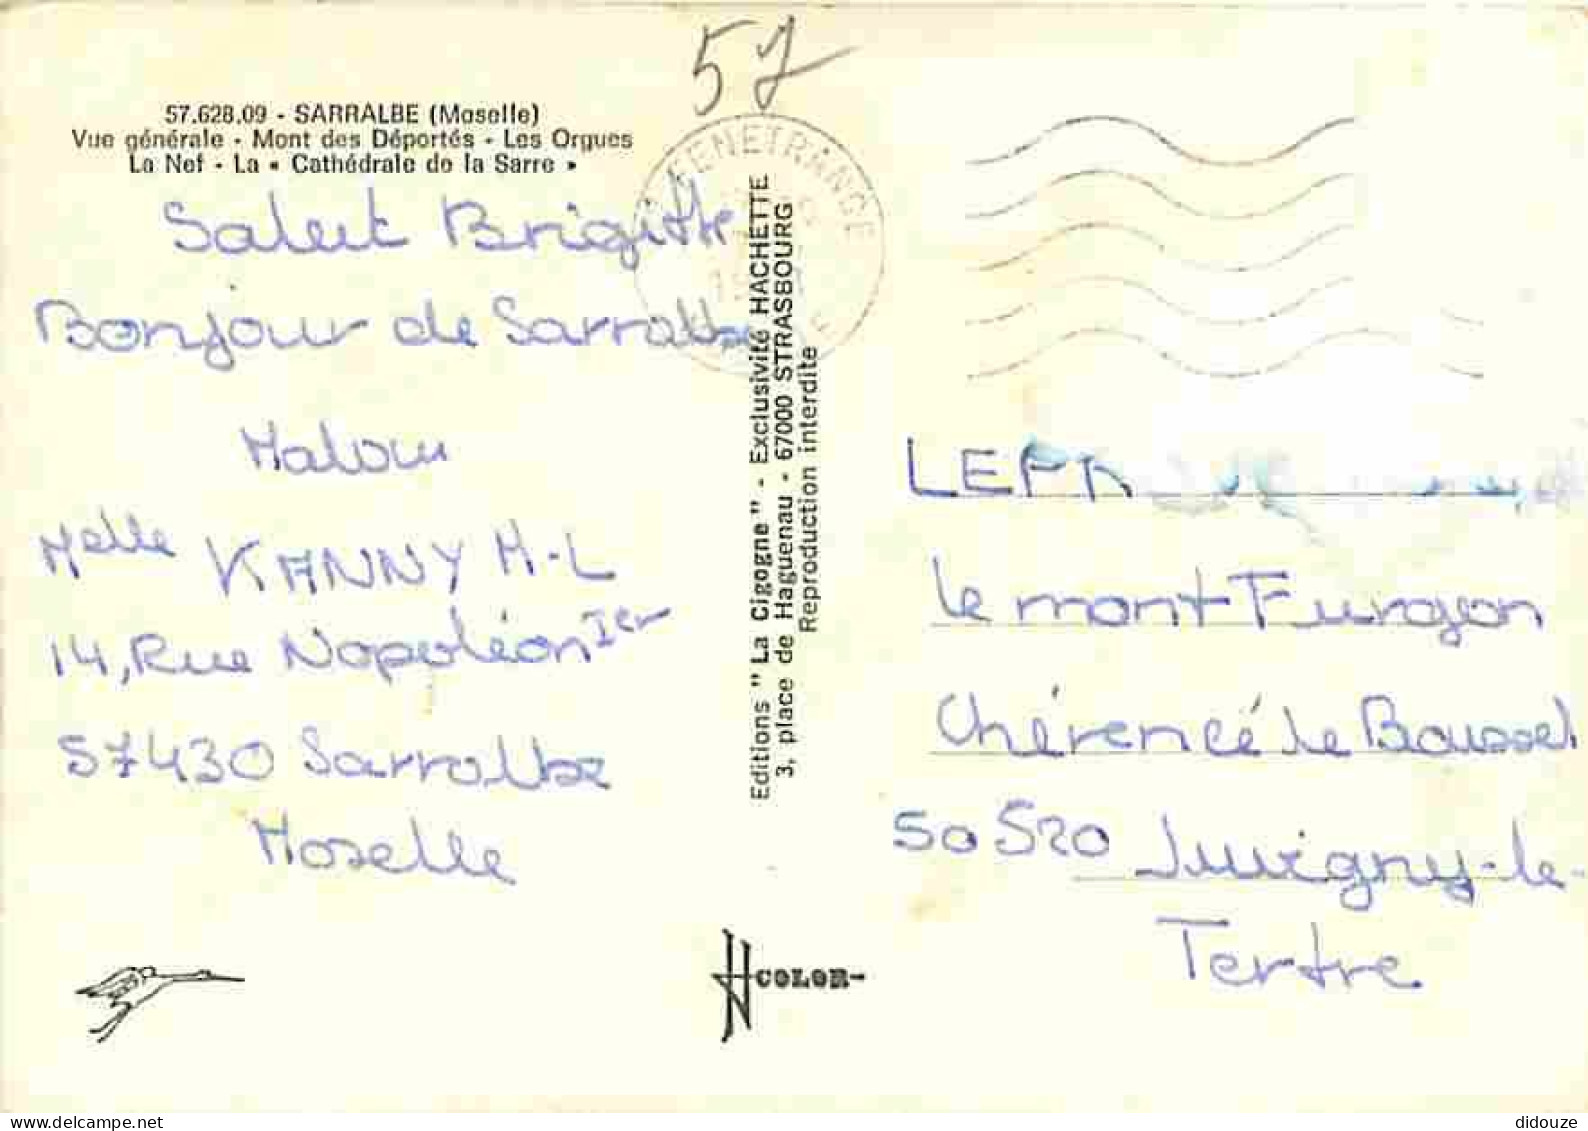 57
57.628.09 - SARRALBE (Moselle)
Vue générale - Mont des Déportés - Les Orgues
La Nef - La « Cathédrale de la Sarre »
FENETRANGE
Salut Brigitte
Bonjour de Sarralbe
Malou
Melle KANNY M-L
14, Rue Napoléon Ier
57430 Sarralbe
Moselle
Editions "La Cigogne" - Exclusivité HACHETTE
3, place de Haguenau - 67000 STRASBOURG
Reproduction interdite
le mont Furgon
Chérencé le Roussel
50 520 Juvigny-le-
Tertre
COLOR
www.delcampe.net
didouze